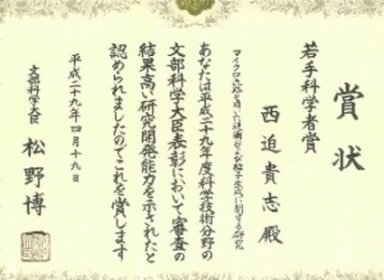 賞状
若手科学者賞
西迫貴志 殿
マイクロ流路を用いた液滴および粒子生成に関する研究
あなたは平成二十九年度科学技術分野の
文部科学大臣表彰において審査の
結果高い研究開発能力を示されたと
認められましたのでこれを賞します
平成二十九年四月十九日
文部科学大臣 松野博